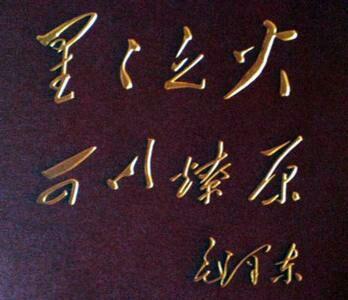 星〻之火
可以燎原
毛泽东